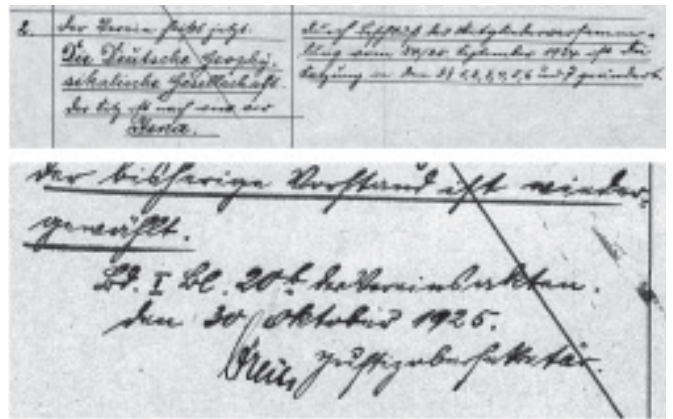 2. Der Verein heißt jetzt:
Die Deutsche Geophy-
sikalische Gesellschaft.
Der Sitz ist nach wie vor
Jena.
Durch Beschluß der Mitgliederversamm-
lung vom September 1924 ist die
Satzung in den §§ 1, 2, 3, 4, 5, 6 und 7 geändert.
Der bisherige Vorstand ist wieder-
gewählt.
Bd. I Bl. 20 der Vereinsakten.
den 30 Oktober 1925.
Justizobersekretär.